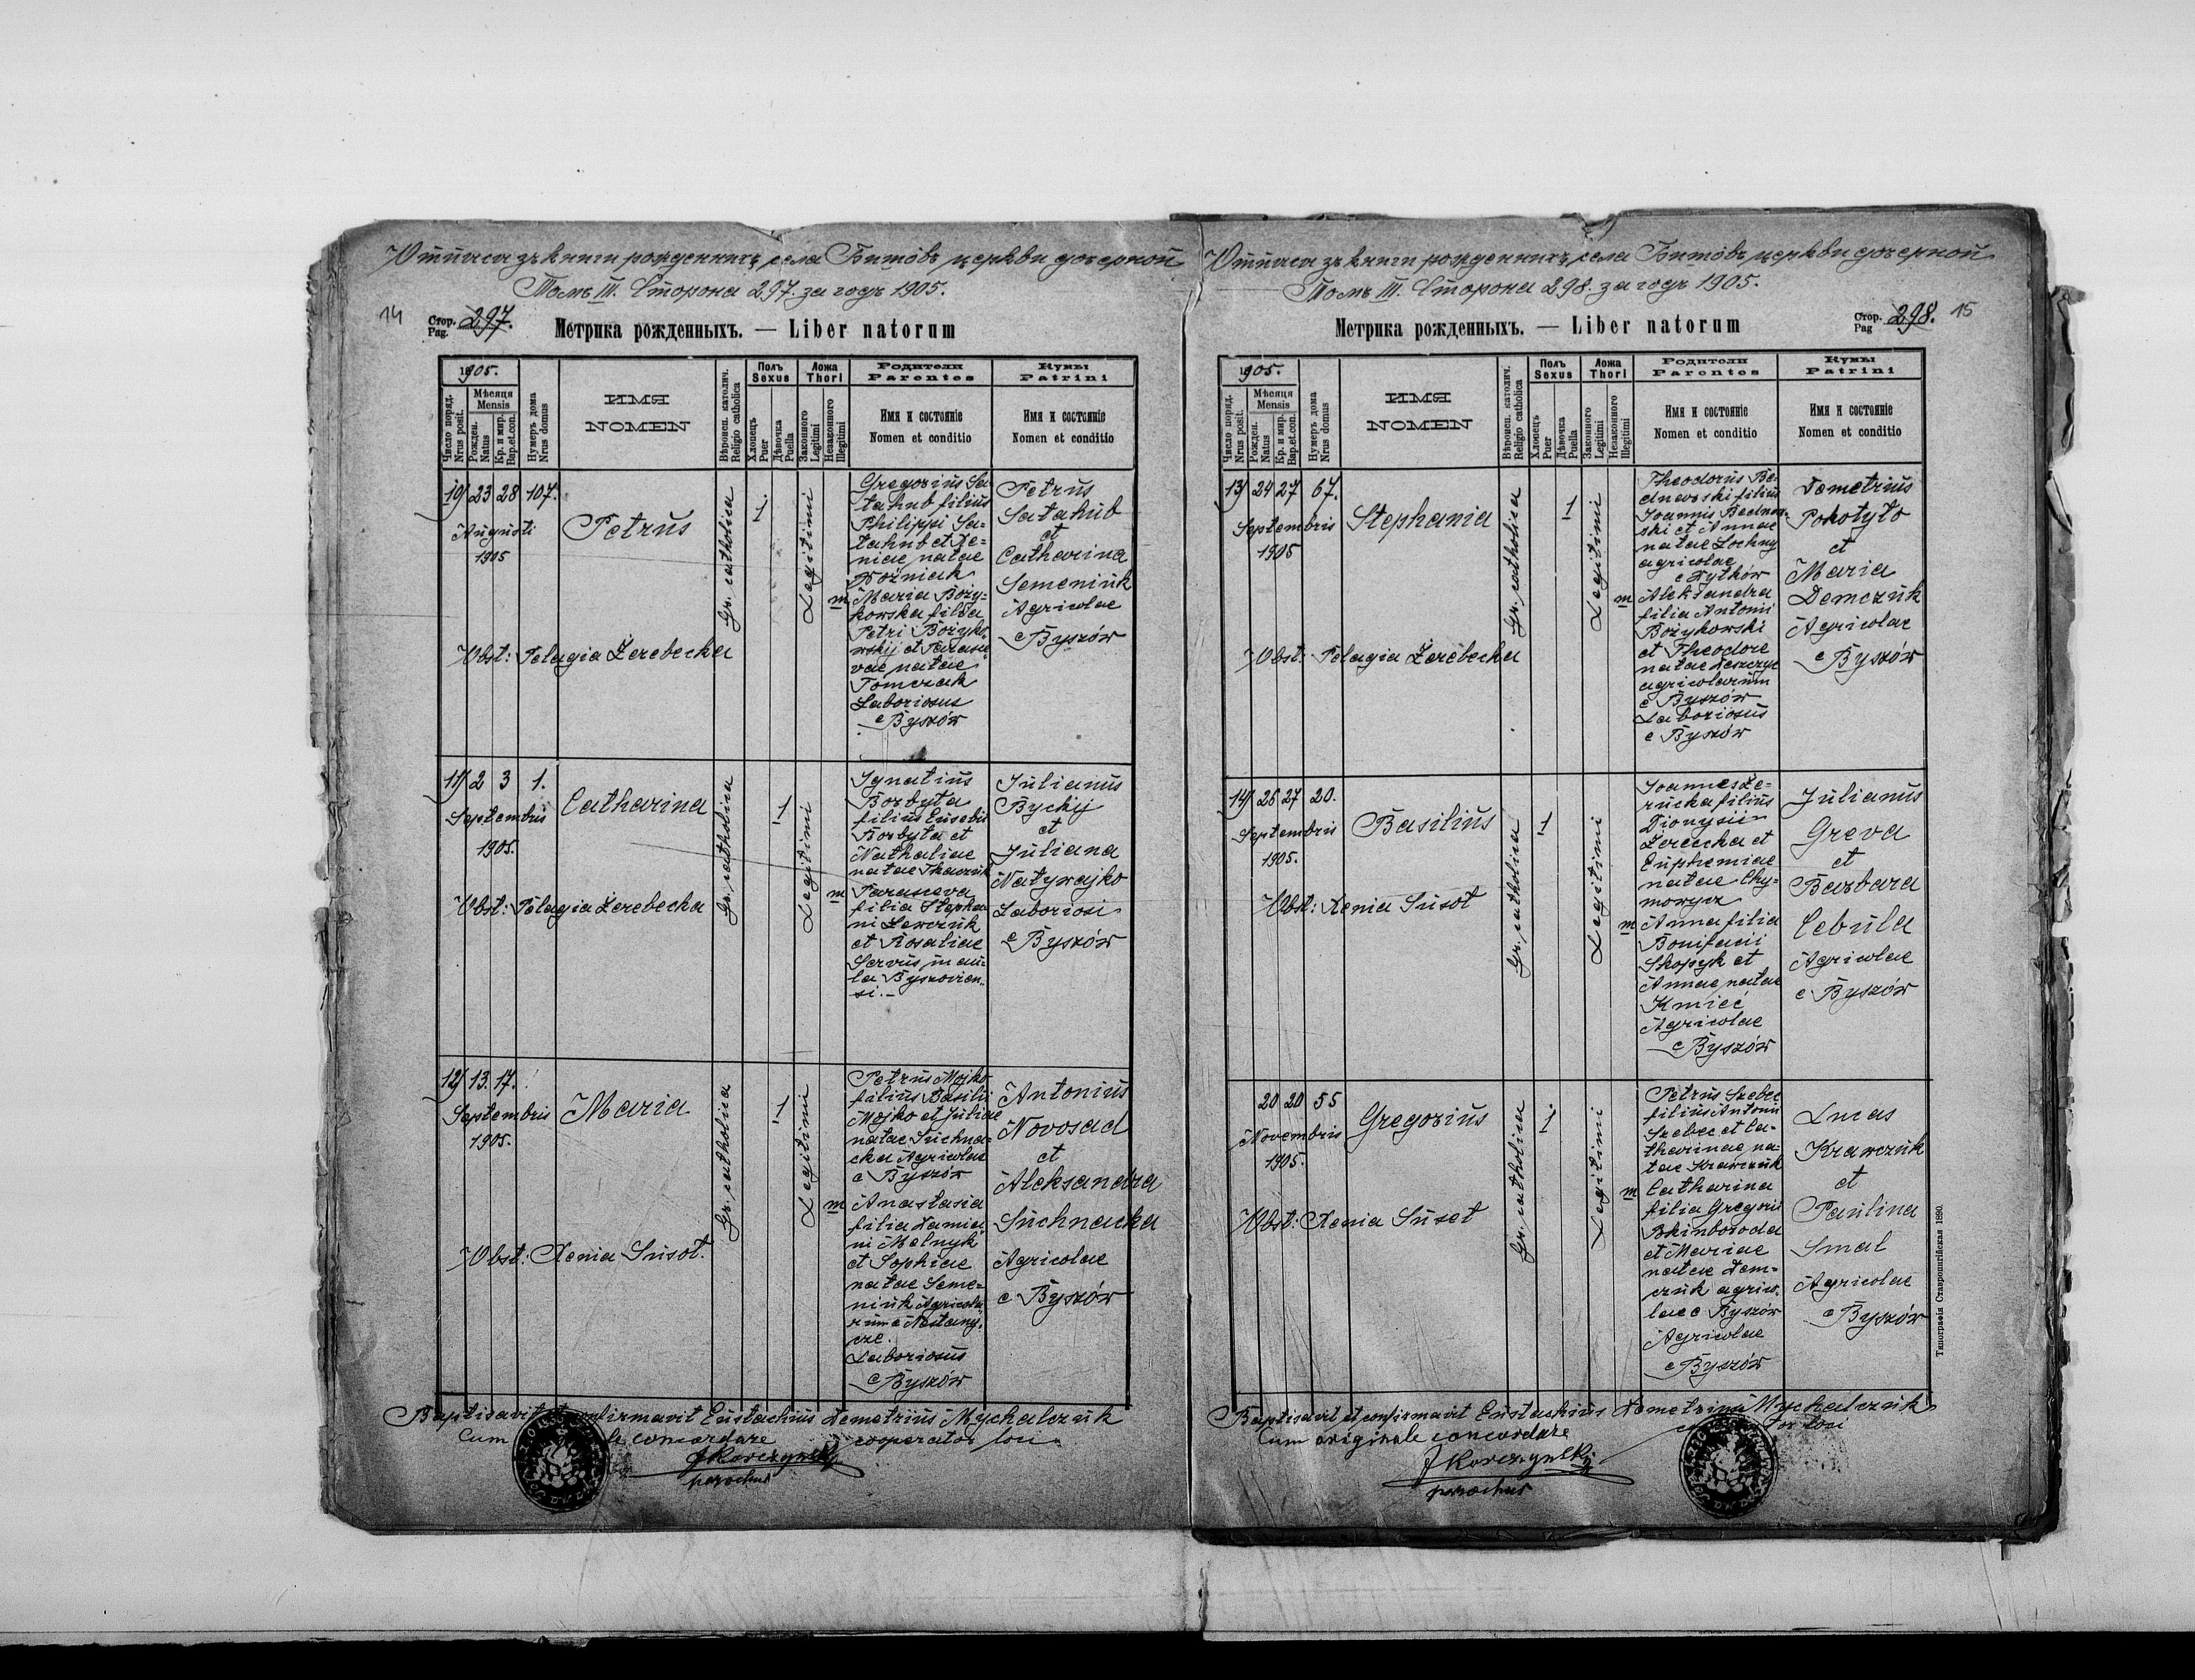 Отписъ зъ книги рожденныхъ села Бишôвъ церкви дочерной
Томъ III. Сторона 297. за годъ 1905.
14
Стор. 297.
Pag.
Метрика рожденныхъ. — Liber natorum
1905.
Число поряд.
Nrus posit.
Мѣсяця
Mensis
Рожден.
Natus
Кр. и мир.
Bap.et.con.
Нумеръ дома
Nrus domus
ИМЯ
NOMEN
Вѣроисп. католич.
Religio catholica
Полъ
Sexus
Хлопецъ
Puer
Дѣвочка
Puella
Ложа
Thori
Законного
Legitimi
Незаконного
Illegitimi
Родители
Parentes
Имя и состояніе
Nomen et conditio
Кумы
Patrini
Имя и состояніе
Nomen et conditio
10/ 23 28 107.
Augusti
1905
Petrus
Gr. catholica
1.
Legitimi
Gregorius Sa-
tahub filius
Philippi Sa-
tahub et Xe-
niae natae
Woźniak
m Maria Boży-
kowska filia
Petri Bożyko-
wskij et Parasce-
vae natae
Tomczak
Laboriosus
e Byszów
Petrus
Satahub
et
Catharina
Semeniuk
Agricolae
e Byszów
Obst: Pelagia Żerebecka
11/ 2 3 1.
Septembris
1905.
Catharina
Gr. catholica
1
Legitimi
Ignatius
Borbyta
filius Eusebii
Borbyta et
Nathaliae
natae Tkaczuk
m Parasceva
filia Stepha-
ni Lewczuk
et Rosaliae
Servus in au-
la Byszovien-
si.-
Julianus
Byckij
et
Juliana
Natywajko
Laboriosi
e Byszów
Obst: Pelagia Żerebecka
12/ 13. 17.
Septembris
1905.
Maria
Gr. catholica
1
Legitimi
Petrus Mojko
filius Basilii
Mojko et Juliae
natae Suchna-
cka Agricolae
e Byszów
m Anastasia
filia Damia-
ni Melnyk
et Sophiae
natae Seme-
niuk Agricola-
rum e Nestany-
cze.
Laboriosus
e Byszów
Antonius
Novosad
et
Aleksandra
Suchnacka
Agricolae
e Byszów
Obst: Xenia Susot.
Baptisavit et confirmavit Eustachius Demetrius Mychalczuk
Cum concordare cooperator loci
JKorczynskij
parochus
Отписъ зъ книги рожденныхъ села Бишôвъ церкви дочерной
Томъ III. Сторона 298. за годъ 1905.
Метрика рожденныхъ. — Liber natorum
Стор. 298. 15
Pag
1905.
Число поряд.
Nrus posit.
Мѣсяця
Mensis
Рожден.
Natus
Кр. и мир.
Bap.et.con.
Нумеръ дома
Nrus domus
ИМЯ
NOMEN
Вѣроисп. католич.
Religio catholica
Полъ
Sexus
Хлопецъ
Puer
Дѣвочка
Puella
Ложа
Thori
Законного
Legitimi
Незаконного
Illegitimi
Родители
Parentes
Имя и состояніе
Nomen et conditio
Кумы
Patrini
Имя и состояніе
Nomen et conditio
13/ 24 27 67.
Septembris
1905
Stephania
Gr. catholica
1
Legitimi
Theodorus Be-
dnarski filius
Joannis Bednar-
ski et Annae
natae Lochny
agricolae
e Rytków
m Aleksandra
filia Antonii
Bożykowski
et Theodore
natae Leszczyc
agricolarum
e Byszów
Laboriosus
e Byszów
Demetrius
Pohotyło
et
Maria
Demczuk
Agricolae
e Byszów
Obst: Pelagia Żerebecka
14/ 26 27 20.
Septembris
1905.
Basilius
Gr. catholica
1
Legitimi
Joannes Że-
rucha filius
Dionysii
Żerucha et
Euphemiae
natae Chy-
morycz
m Anna filia
Bonifacii
Skopyk et
Annae natae
Kmieć
Agricolae
e Byszów
Julianus
Greva
et
Barbara
Cebula
Agricolae
e Byszów
Obst: Xenia Susot
20 20 55
Novembris
1905.
Gregorius
Gr. catholica
1
Legitimi
Petrus Szebec
filius Antonii
Szebec et Ca-
tharinae na-
tae Krawczuk
m Catharina
filia Gregorii
Skinboroda
et Mariae
natae Dem-
czuk agrico-
lae e Byszów
Agricolae
e Byszów
Lucas
Krawczuk
et
Paulina
Smal
Agricolae
e Byszów
Obst: Xenia Susot
Baptisavit et confirmavit Eustachius Demetrius Mychalczuk
Cum originale concordare loci
JKorczynskij
parochus
Типографія Ставропигійская 1890.